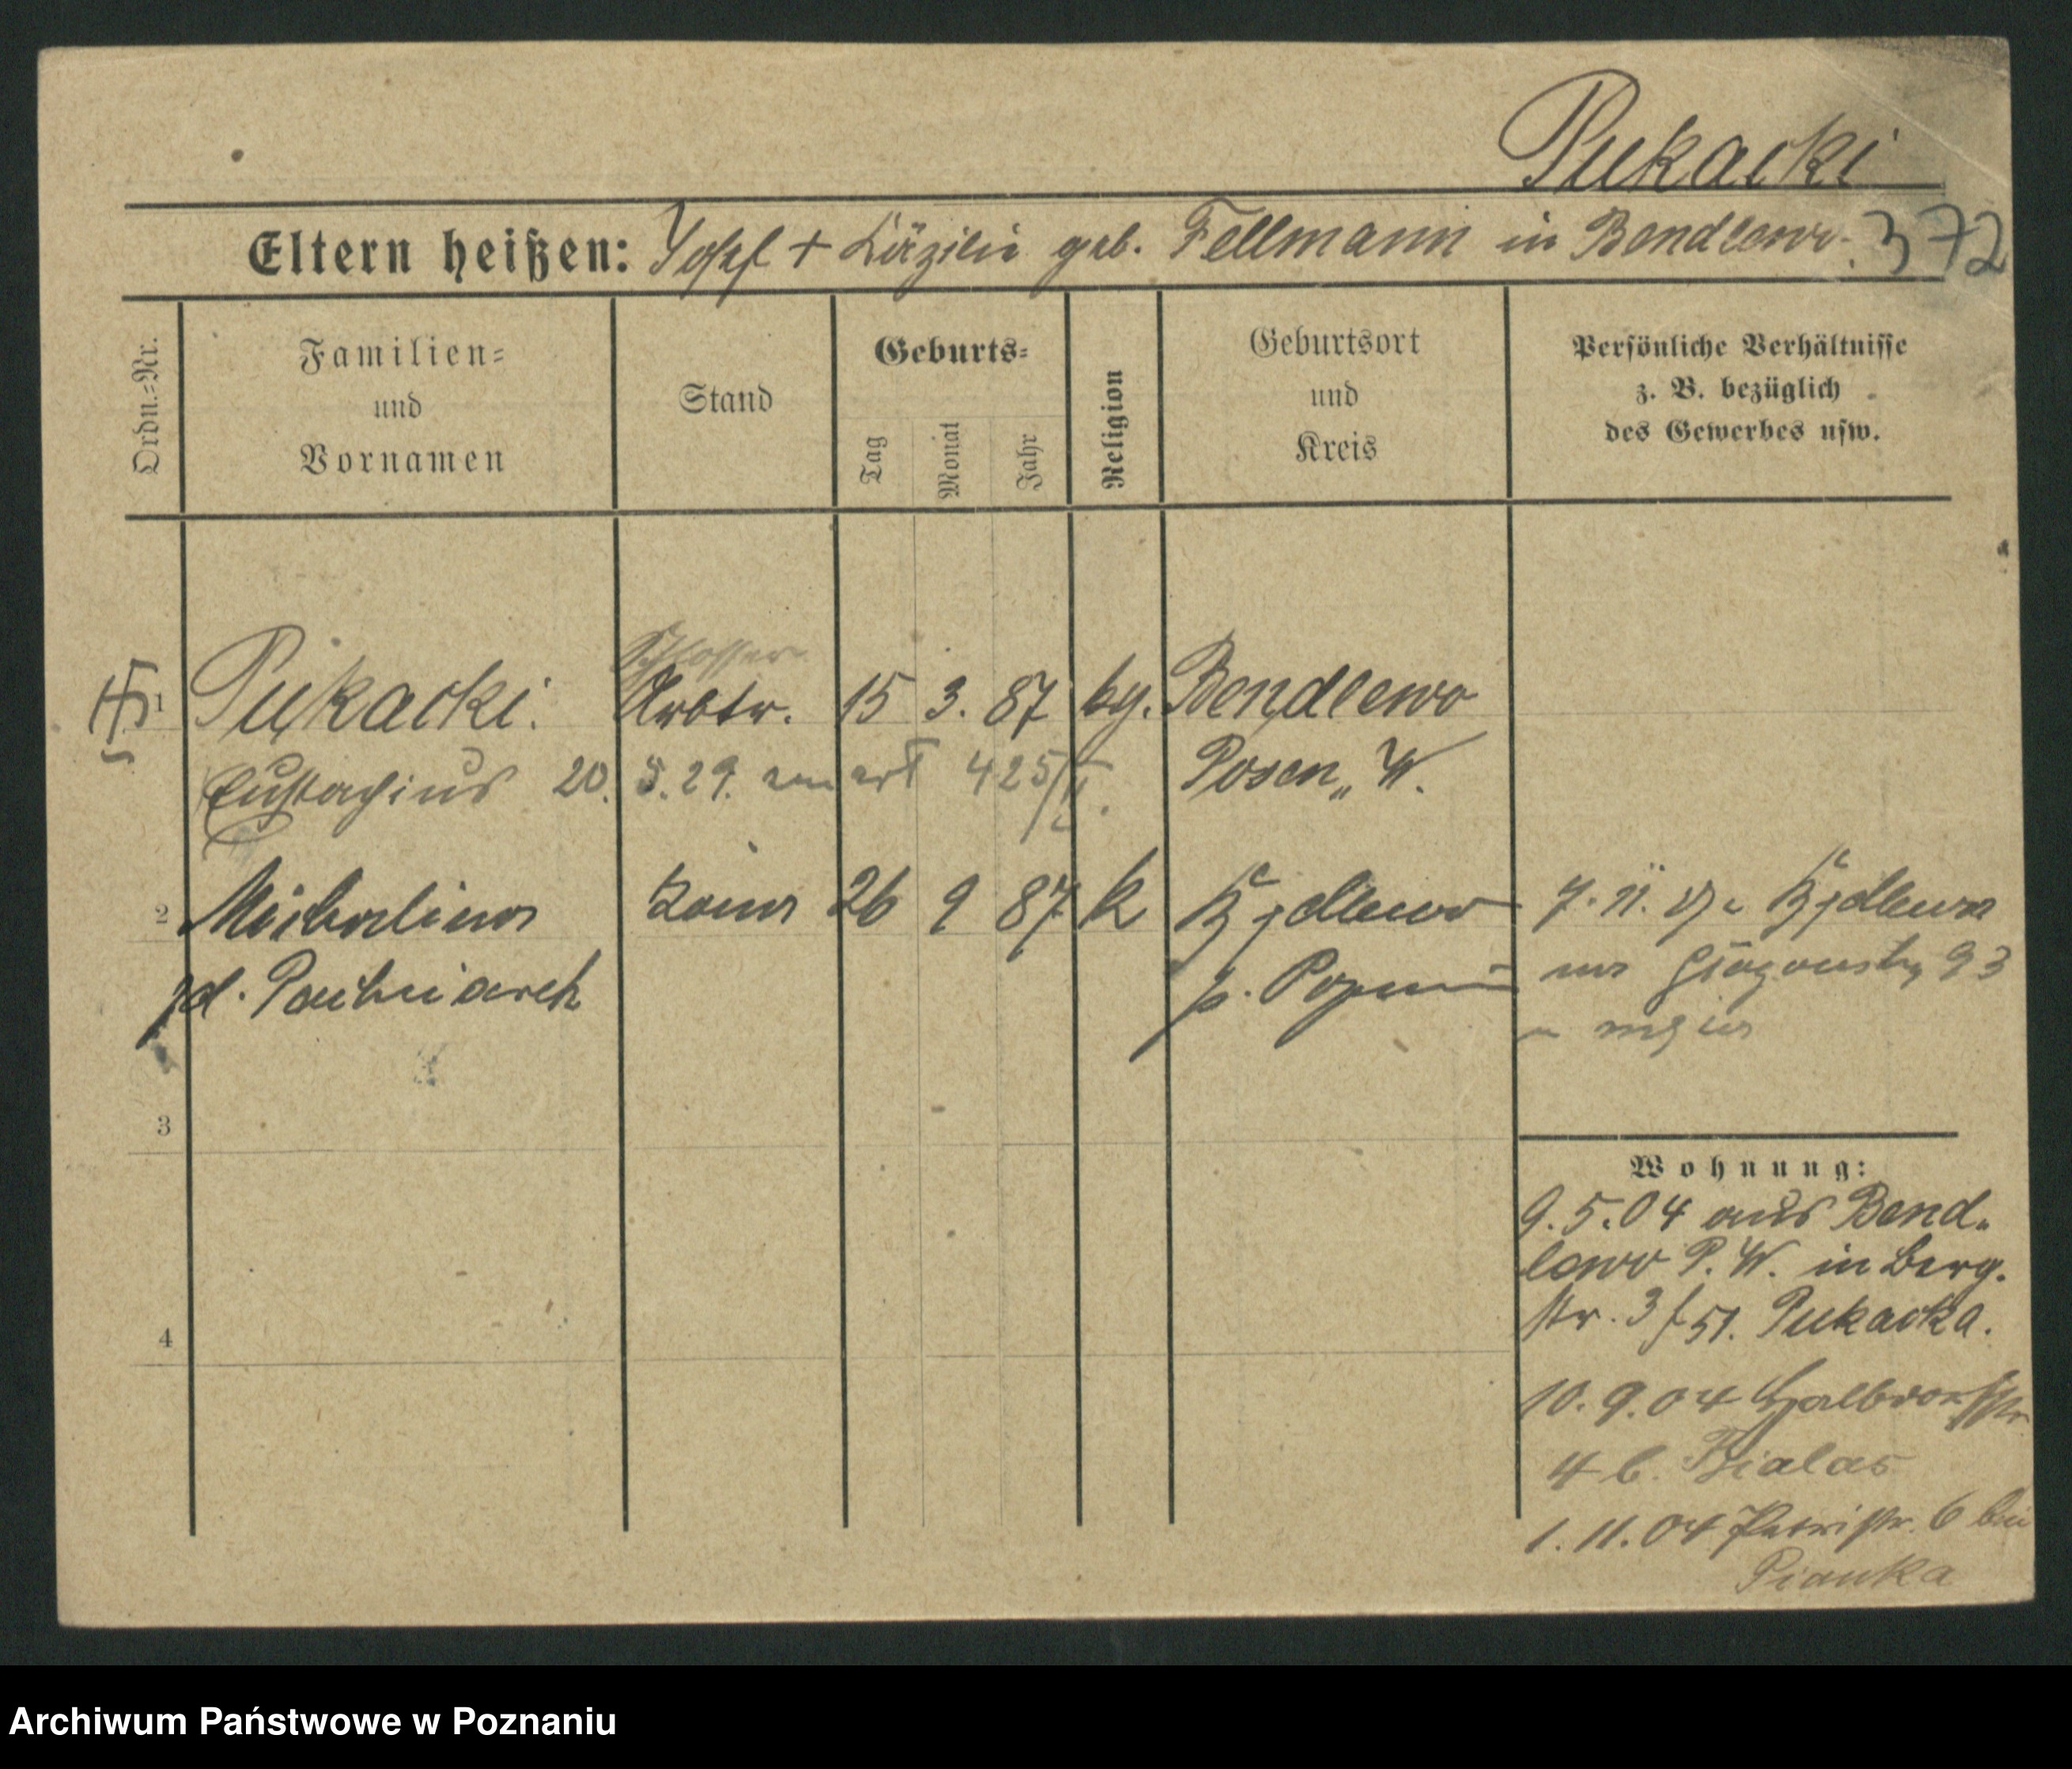 Pukacki
Eltern heißen: Josef + Käzilie geb. Fellmann in Bendlewo. 372
Ordn.=Nr.
Familien=
und
Vornamen
Stand
Geburts=
Tag
Monat
Jahr
Religion
Geburtsort
und
Kreis
Persönliche Verhältnisse
z. B. bezüglich
des Gewerbes usw.
Schlosser
1 Pukacki. Arbtr. 15 3. 87 kg. Bendlewo
Eustachius 20. 3. 29. 425/II. Posen, W.
2 Michalina żona 26 9 87 k Będlewo
zd. Pachciarek p. Poznań
7. 11. Będlewa
na 93
3
4
Wohnung:
9.5.04 aus Bend-
lewo P. W. in Berg-
str. 3 Pukacka.
10.9.04 Halbdorfstr.
4 b. Bialas
1.11.04 Petristr. 6 bei
Pianka
Archiwum Państwowe w Poznaniu